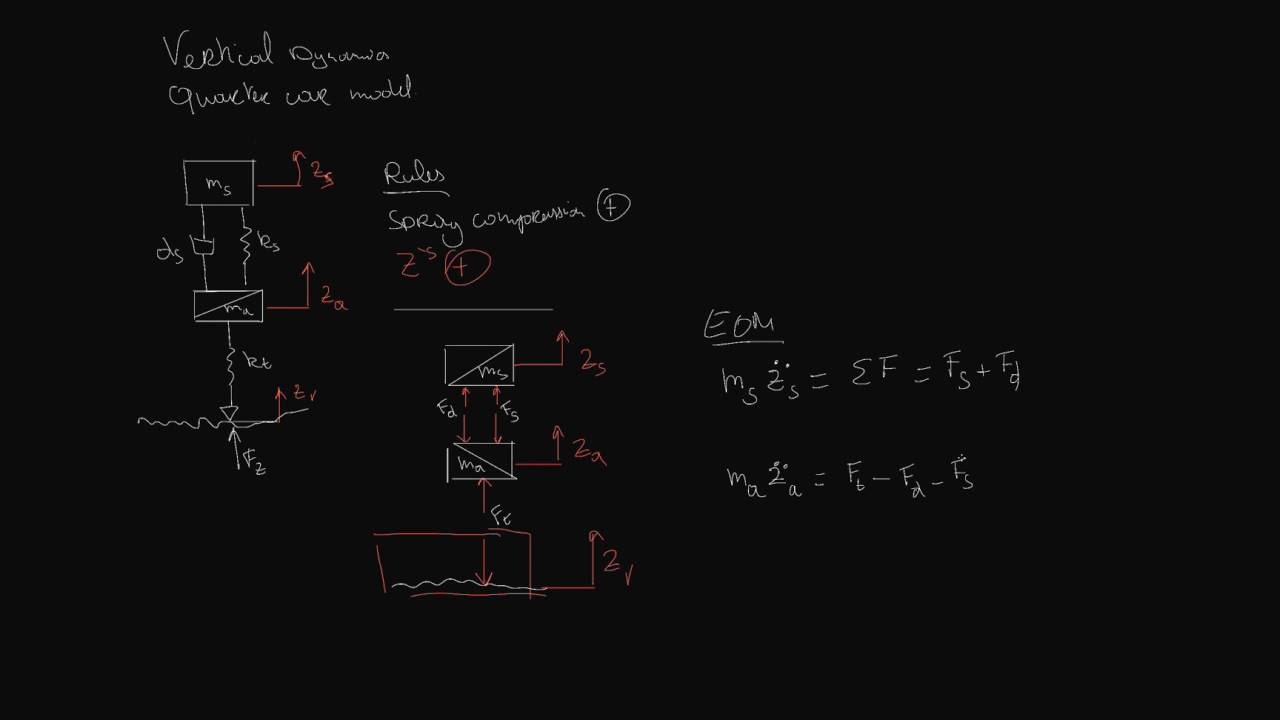 Vertical Dynamics
Quarter car model.
m_s
z_s
d_s
k_s
m_a
z_a
k_t
z_r
F_z
Rules
Spring compression (+)
z's (+)
m_s
z_s
F_d
F_s
m_a
z_a
F_t
z_r
EOM
m_s z̈_s = ΣF = F_s + F_d
m_a z̈_a = F_t - F_d - F_s